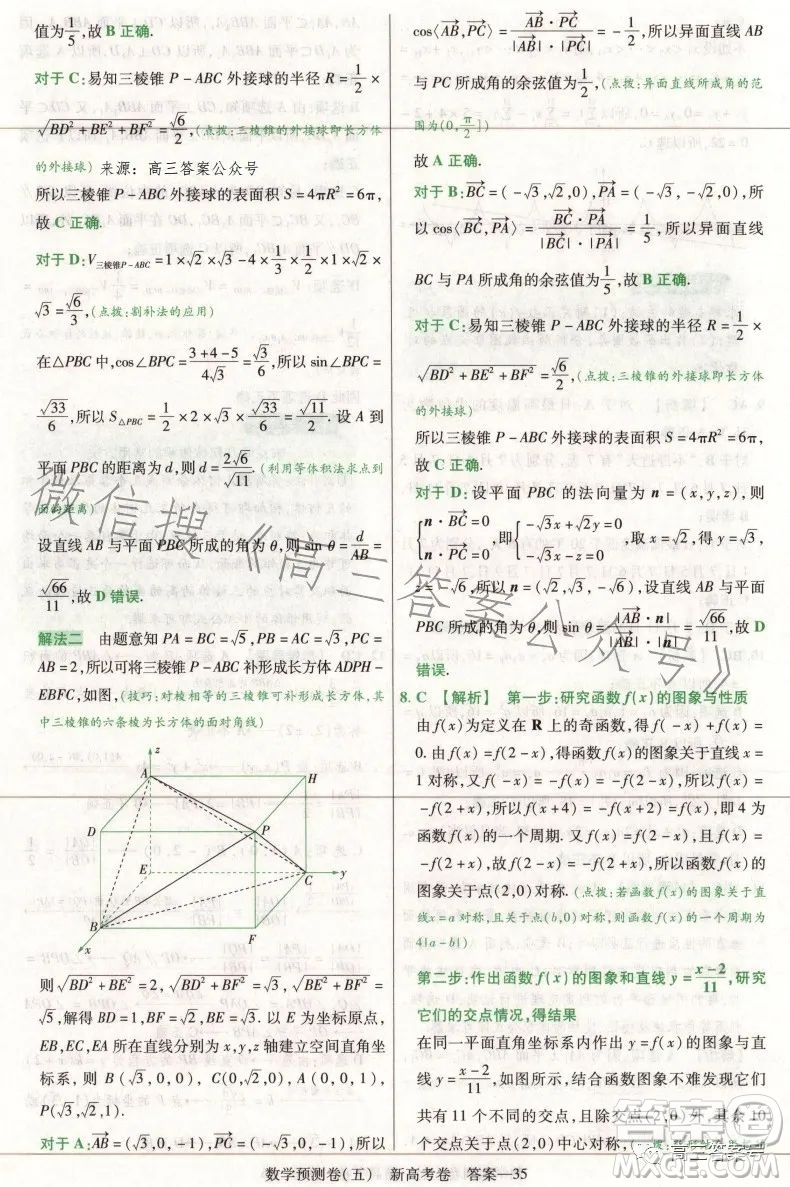 值为1/5,故 B 正确.
对于 C:易知三棱锥 P-ABC 外接球的半径 R=1/2×
√(BD²+BE²+BF²)=√6/2,(点拨:三棱锥的外接球即长方体
的外接球) 来源:高三答案公众号
所以三棱锥 P-ABC 外接球的表面积 S=4πR²=6π,
故 C 正确.
对于 D:V三棱锥P-ABC=1×√2×√3-4×1/3×1/2×1×√2×
√3=√6/3,(点拨:割补法的应用)
在△PBC 中,cos∠BPC=(3+4-5)/(4√3)=√3/6,所以 sin∠BPC=
√33/6,所以 S△PBC=1/2×2×√3×√33/6=√11/2. 设 A 到
平面 PBC 的距离为 d,则 d=2√6/√11.(利用等体积法求点到
面的距离)
设直线 AB 与平面 PBC 所成的角为 θ,则 sin θ=d/AB=
√66/11,故 D 错误.
解法二 由题意知 PA=BC=√5,PB=AC=√3,PC=
AB=2,所以可将三棱锥 P-ABC 补形成长方体 ADPH-
EBFC,如图,(技巧:对棱相等的三棱锥可补形成长方体,其
中三棱锥的六条棱为长方体的面对角线)
z
A
H
D
P
E
C
y
B
F
x
则 √(BD²+BE²)=2,√(BD²+BF²)=√3,√(BE²+BF²)=
√5,解得 BD=1,BF=√2,BE=√3. 以 E 为坐标原点,
EB,EC,EA 所在直线分别为 x,y,z 轴建立空间直角坐
标系,则 B(√3,0,0),C(0,√2,0),A(0,0,1),
P(√3,√2,1).
对于 A:AB=(√3,0,-1),PC=(-√3,0,-1),所以
cos⟨AB,PC⟩=AB·PC/(|AB|·|PC|)=-1/2,所以异面直线 AB
与 PC 所成角的余弦值为1/2,(点拨:异面直线所成角的范
围为(0,π/2])
故 A 正确.
对于 B:BC=(-√3,√2,0),PA=(-√3,-√2,0),所
以 cos⟨BC,PA⟩=BC·PA/(|BC|·|PA|)=1/5,所以异面直线
BC 与 PA 所成角的余弦值为1/5,故 B 正确.
对于 C:易知三棱锥 P-ABC 外接球的半径 R=1/2×
√(BD²+BE²+BF²)=√6/2,(点拨:三棱锥的外接球即长方体
的外接球)
所以三棱锥 P-ABC 外接球的表面积 S=4πR²=6π,
故 C 正确.
对于 D:设平面 PBC 的法向量为 n=(x,y,z),则
{n·BC=0 n·PC=0,即{-√3x+√2y=0 -√3x-z=0,取 x=√2,得 y=√3,
z=-√6,所以 n=(√2,√3,-√6),设直线 AB 与平面
PBC 所成的角为 θ,则 sin θ=|AB·n|/(|AB|·|n|)=√66/11,故 D
错误.
8. C 【解析】 第一步:研究函数 f(x)的图象与性质
由 f(x)为定义在 R 上的奇函数,得 f(-x)+f(x)=
0. 由 f(x)=f(2-x),得函数 f(x)的图象关于直线 x=
1 对称,又 f(-x)=-f(x)=-f(2-x),所以 f(x)=
-f(2+x),所以 f(x+4)=-f(x+2)=f(x),即 4 为
函数 f(x)的一个周期. 又 f(x)=f(2-x),且 f(x)=
-f(2+x),所以 f(2-x)=-f(2+x),所以函数 f(x)的
图象关于点(2,0)对称.(点拨:若函数 f(x)的图象关于直
线 x=a 对称,且关于点(b,0)对称,则函数 f(x)的一个周期为
4|a-b|)
第二步:作出函数 f(x)的图象和直线 y=(x-2)/11,研究
它们的交点情况,得结果
在同一平面直角坐标系内作出 y=f(x)的图象与直
线 y=(x-2)/11,如图所示,结合函数图象不难发现它们
共有 11 个不同的交点,且除交点(2,0)外,其余 10
个交点关于点(2,0)中心对称,
数学预测卷(五) 新高考卷 答案—35
微信搜《高三答案公众号》
答案圈
高三答案号